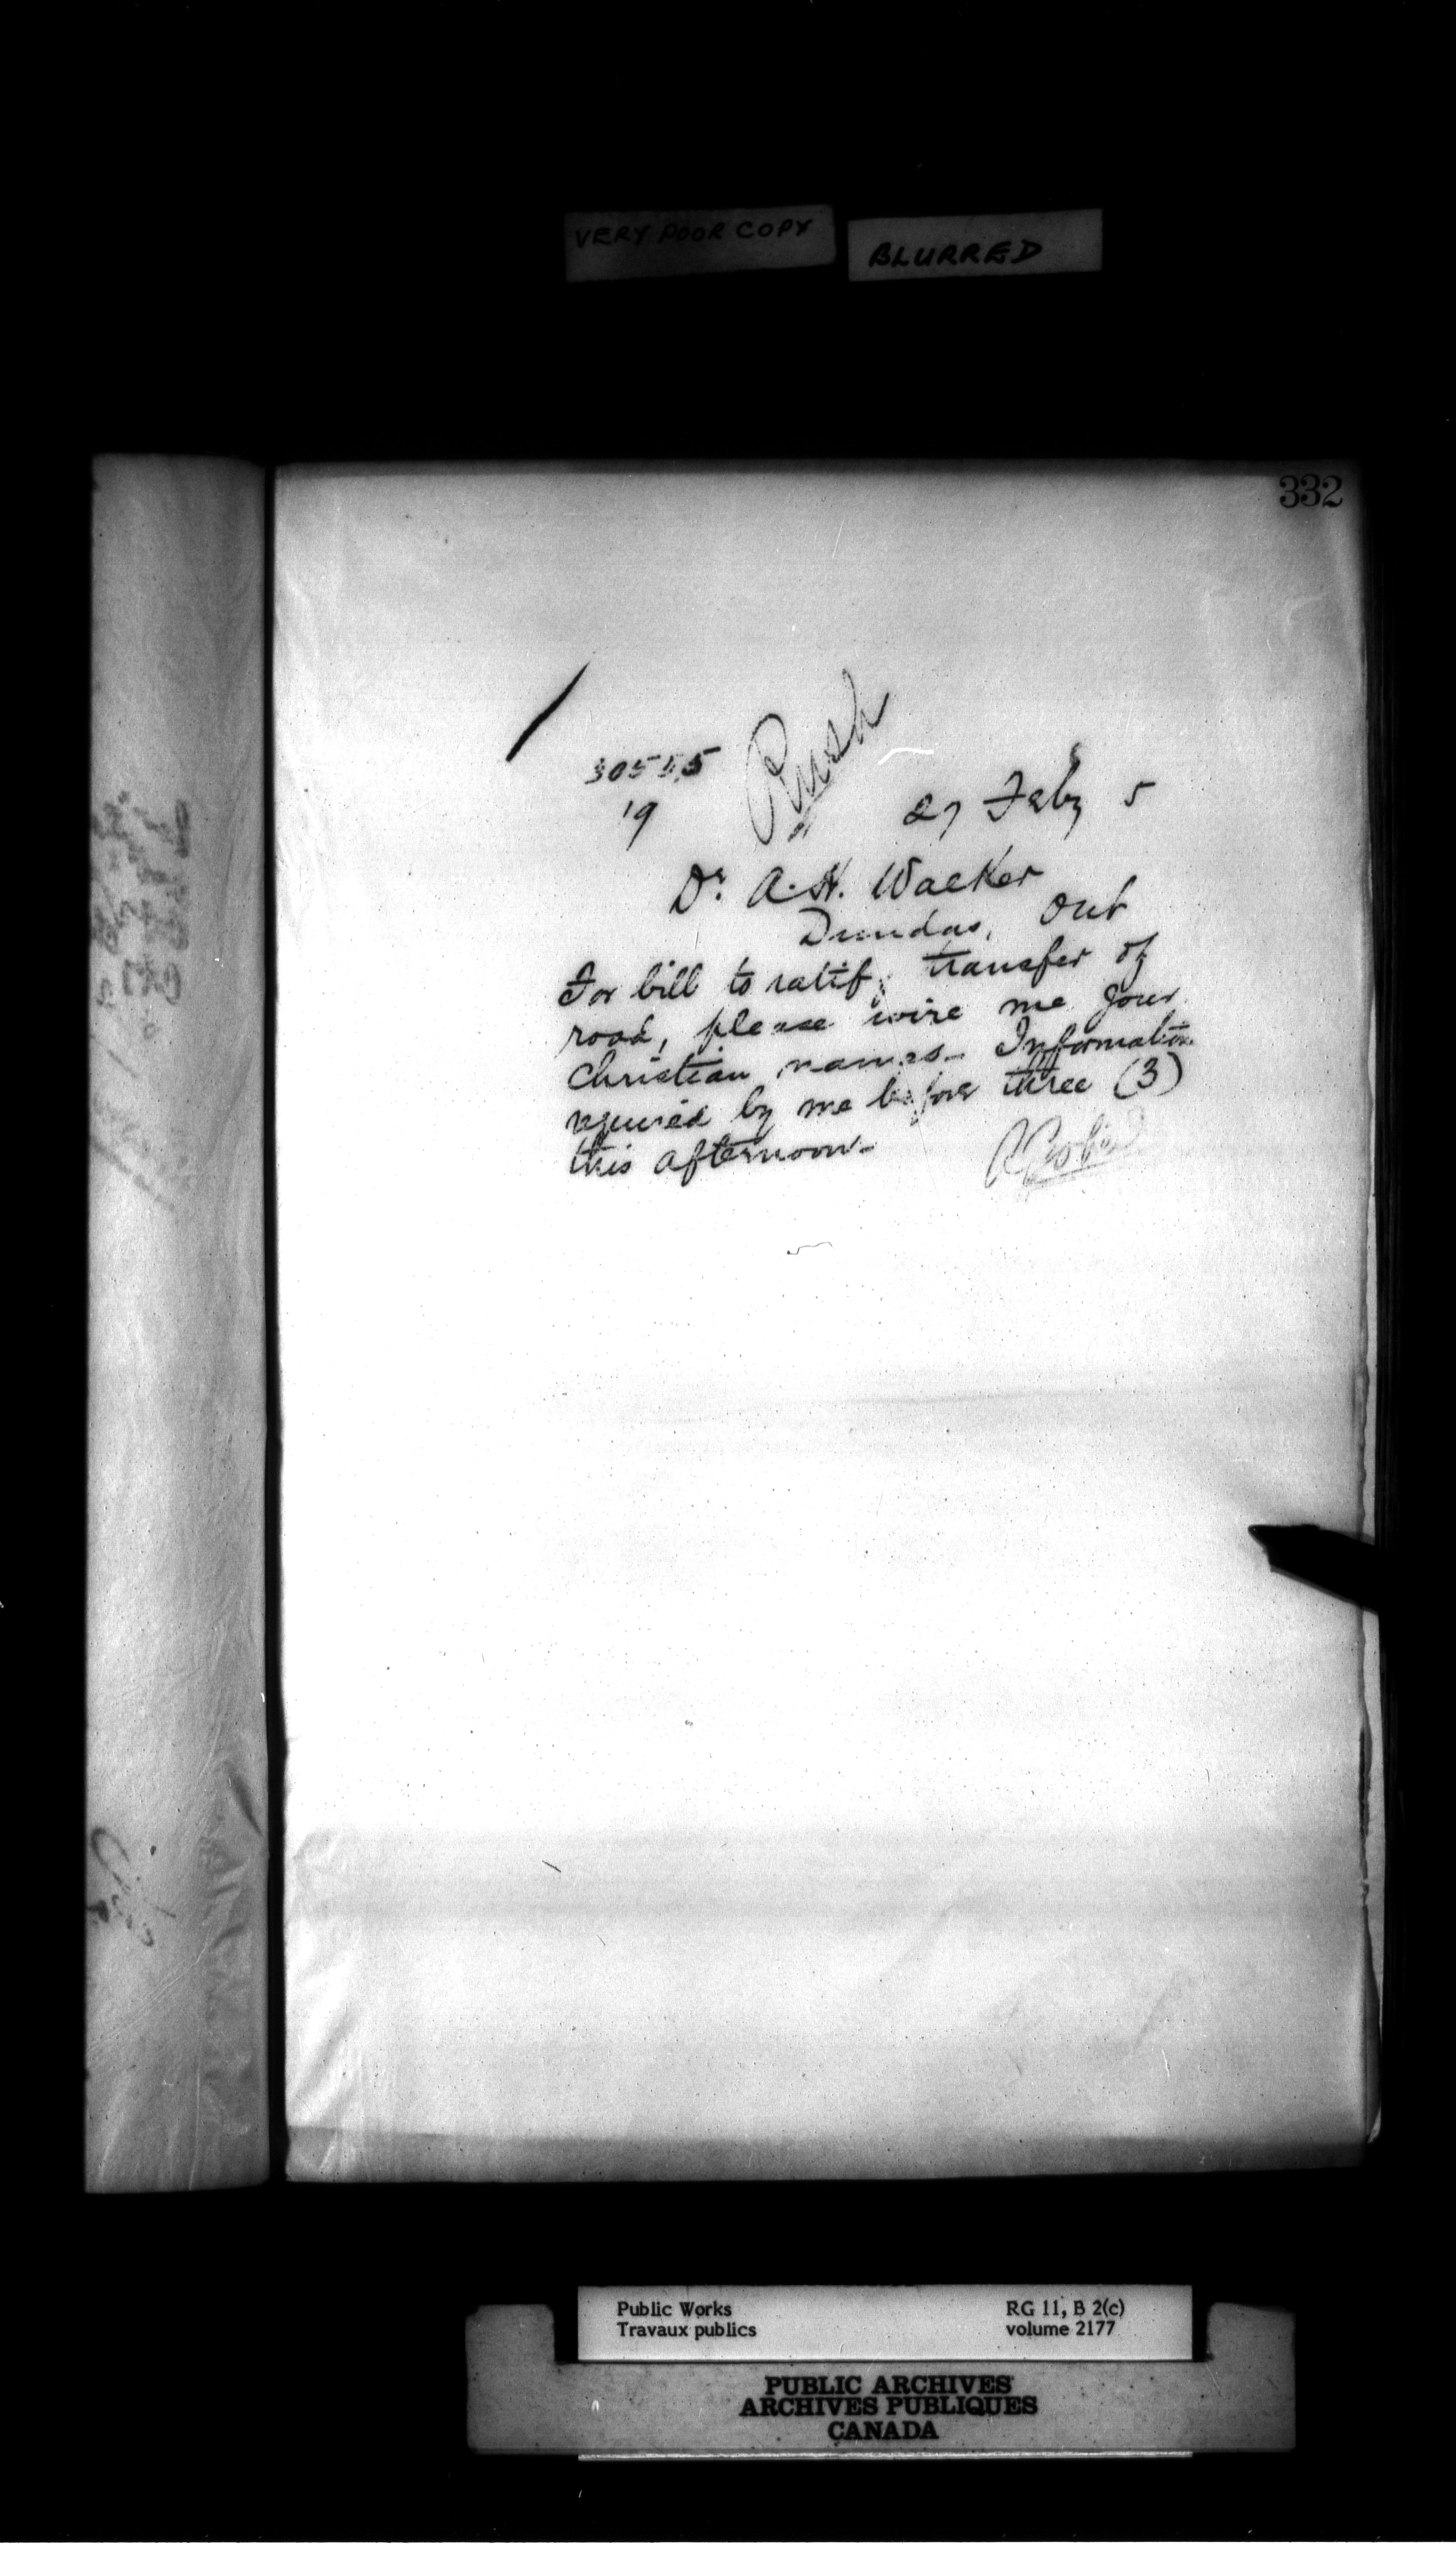 VERY POOR COPY
BLURRED
332
Rush
19
27 Feby 5
Dr. A. H. Walker
Dundas, Ont
For bill to ratify transfer of
road, please wire me your
Christian names - Information
required by me before three (3)
this afternoon -
Public Works
Travaux publics
RG 11, B 2(c)
volume 2177
PUBLIC ARCHIVES
ARCHIVES PUBLIQUES
CANADA